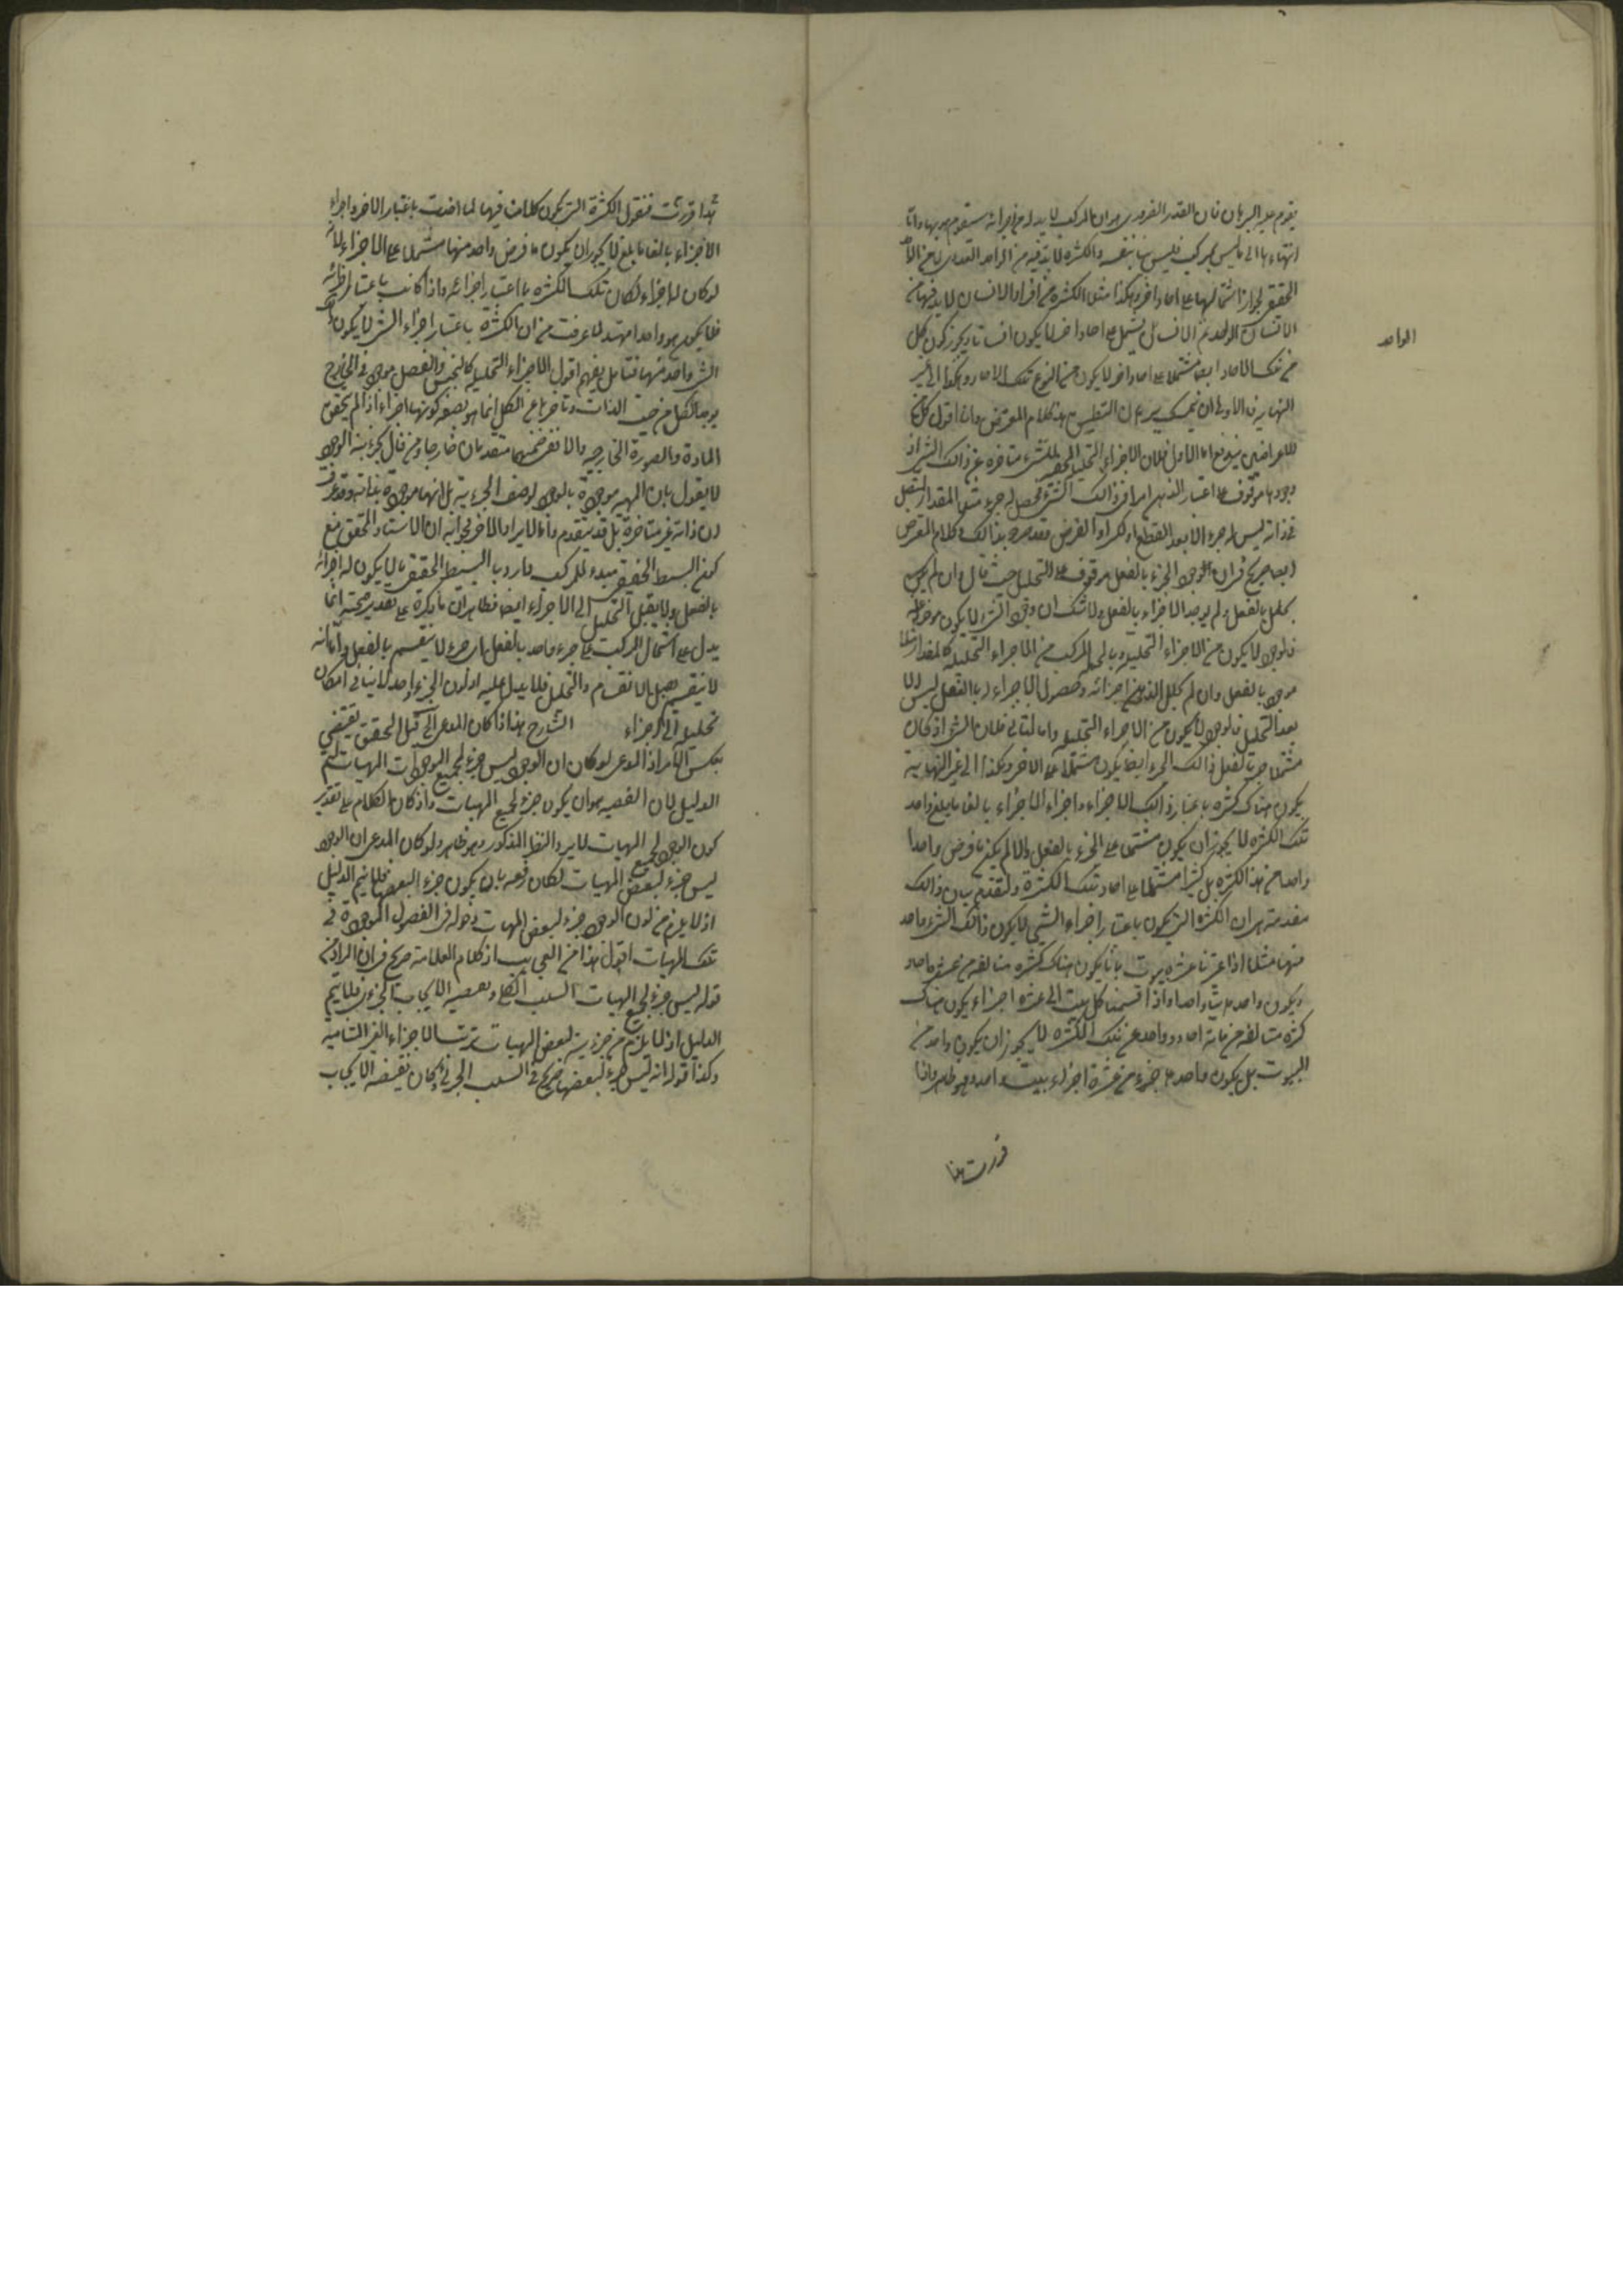 يقوم عليه البرهان فان القدر الضرورى هو ان المركب لا بد له من اجزائه يتقوم هو بها واما
انتهاءها الى ما ليس بمركب فليس بينا بنفسه والكثرة لا بد فيه من الواحد العددى لا من الواحد
الحقيقى لجواز اشتمالها على احاد اخر وهكذا مثلا الكثرة من افراد الانسان لا بد فيها من
الواحد
الانسان الواحد من الانسان يشتمل على احاد اخر لا يكون انسانا ويجوز كون كل
من تلك الاحاد ايضا مشتملا على احاد اخر لا يكون من النوع تلك الاحاد وهكذا الى غير
النهاية فالاولى ان يتمسك ببرهان التطبيق هذا كلام المعترض وانا اقول كل من
الاعتراضين مندفع اما الاول فلان الاجزاء التحليلية للشىء متاخرة عن ذلك الشىء اذ
وجودها موقوف على اعتبار الذهن امرا فى ذلك الشىء يحصل له جزء مثلا المقدار المتصل
فى ذاته ليس له جزء الا بعد القطع او الكسر او الفرض وقد صرح بذلك وكلام المعترض
ايضا صريح فى ان الوجود الجزء بالفعل موقوف على التحليل حيث قال وان لم يكن
يحلل بالفعل ولم يوجد الاجزاء بالفعل ولا شك ان وجود الشىء لا يكون موخرا عنه
فالوجود لا يكون من الاجزاء التحليلية وبالجملة المركب من الاجزاء التحليلية كالمقدار مثلا
موجود بالفعل وان لم يحلل الذهن اجزائه وحصول الاجزاء له بالفعل ليس الا
بعد التحليل فالوجود لا يكون من الاجزاء التحليلية واما الثانى فلان الشىء اذا كان
مشتملا على جزء بالفعل ذلك الجزء ايضا يكون مشتملا على الاخر وهكذا الى غير النهاية
يكون هناك كثرة باعتبار ذلك الاجزاء واجزاء الاجزاء بالغا ما بلغ واحد
تلك الكثرة لا يجوز ان يكون مشتملا على الجزء بالفعل والا لم يكن ما فرض واحدا
واحدا من هذا الكثرة بل كثيرا مشتملا على احاد تلك الكثرة ولنقدم بيان ذلك
مقدمة هى ان الكثرة التى يكون باعتبار اجزاء الشىء لا يكون ذلك الشىء واحد
منها مثلا اذا اعتبرنا عشرة بيوت بانها يكون هناك كثرة متالفة من عشرة احاد
ويكون واحد منها بيتا واحدا واذا قسمنا كل بيت الى عشرة اجزاء يكون هناك
كثرة متالفة من مائة احاد وواحد من تلك الكثرة لا يجوز ان يكون واحد من
البيوت بل يكون واحد هو جزء من عشرة اجزاء بيت واحد وهو ظاهر واذا
قررت هذا
هذا قررت فنقول الكثرة التى يكون كلامنا فيها لما اخذت باعتبار الاجزاء واجزاء
الاجزاء بالغا ما بلغ لا يجوز ان يكون ما فرض واحد منها مشتملا على الاجزاء لانه
لو كان له اجزاء لكان تلك الكثرة باعتبار اجزائه واذا كانت باعتبار اجزائه
فلا يكون هو واحدا منها لما عرفت من ان الكثرة باعتبار اجزاء الشىء لا يكون ذلك
الشىء واحد منها فتامل يفهم اقول الاجزاء التحليلية كالجنس والفصل موجود فى الخارج
بوجود الكل من حيث الذات وتاخرها عن الكل انما هو بصفة كونها اجزاء اذ لم يتحقق
المادة والصورة الخارجية والا فهى ضمنهما متقدمان خارجا ومن قال بجزئية الوجود
لا يقول بان المهية موجودة بالوجود لوصف الجزئية بل انها موجودة بذاته وقد عرفت
ان ذاته غير متاخرة بل قد يتقدم واما الايراد الاخر فجوابه ان الاستاد المحقق منع
كون البسيط الحقيقى مبدء للمركب واراد بالبسيط الحقيقى ما لا يكون له اجزائه
بالفعل ولا يقبل التحليل الى الاجزاء ايضا فظاهر ان ما ذكره على تقدير صحته انما
يدل على اشتمال المركب على جزء واحد بالفعل اى جزء لا ينقسم بالفعل واما انه
لا ينقسم ولا يقبل الانقسام والتحليل فلا يدل عليه اذ كون الجزء واحد لا ينافى امكان
تحليله الى الاجزاء الشارح هذا اذا كان المدعى الى قيل المحقق يقتضى
بعكس الامر اذ المدعى لو كان ان الوجود ليس جزء لجميع الموجودات المهيات لتم
الدليل لان القضية هو ان يكون جزء لجميع المهيات واذ كان الكلام على تقدير
كون الوجود لجميع المهيات لا يرد النقض المذكور وهو ظاهر ولو كان المدعى ان الوجود
ليس جزء لبعض المهيات لكان رفعه بان يكون جزء البعضها فلا يتم الدليل
اذ لا يلزم من كون الوجود جزء لبعض المهيات دخوله فى الفصول الموجودة فى
تلك المهيات اقول هذا من العجايب اذ كلام العلامة صريح فى ان المراد من
قوله ليس جزء لجميع المهيات السلب الكلى ونقيضه الايجاب الجزئى فلا يتم
الدليل اذ لا يلزم من جزئية لبعض المهيات ترتب الاجزاء الغير المتناهية
وكذا قوله انه ليس جزء لبعضها صريح فى السلب الجزئى فكان نقيضه الايجاب